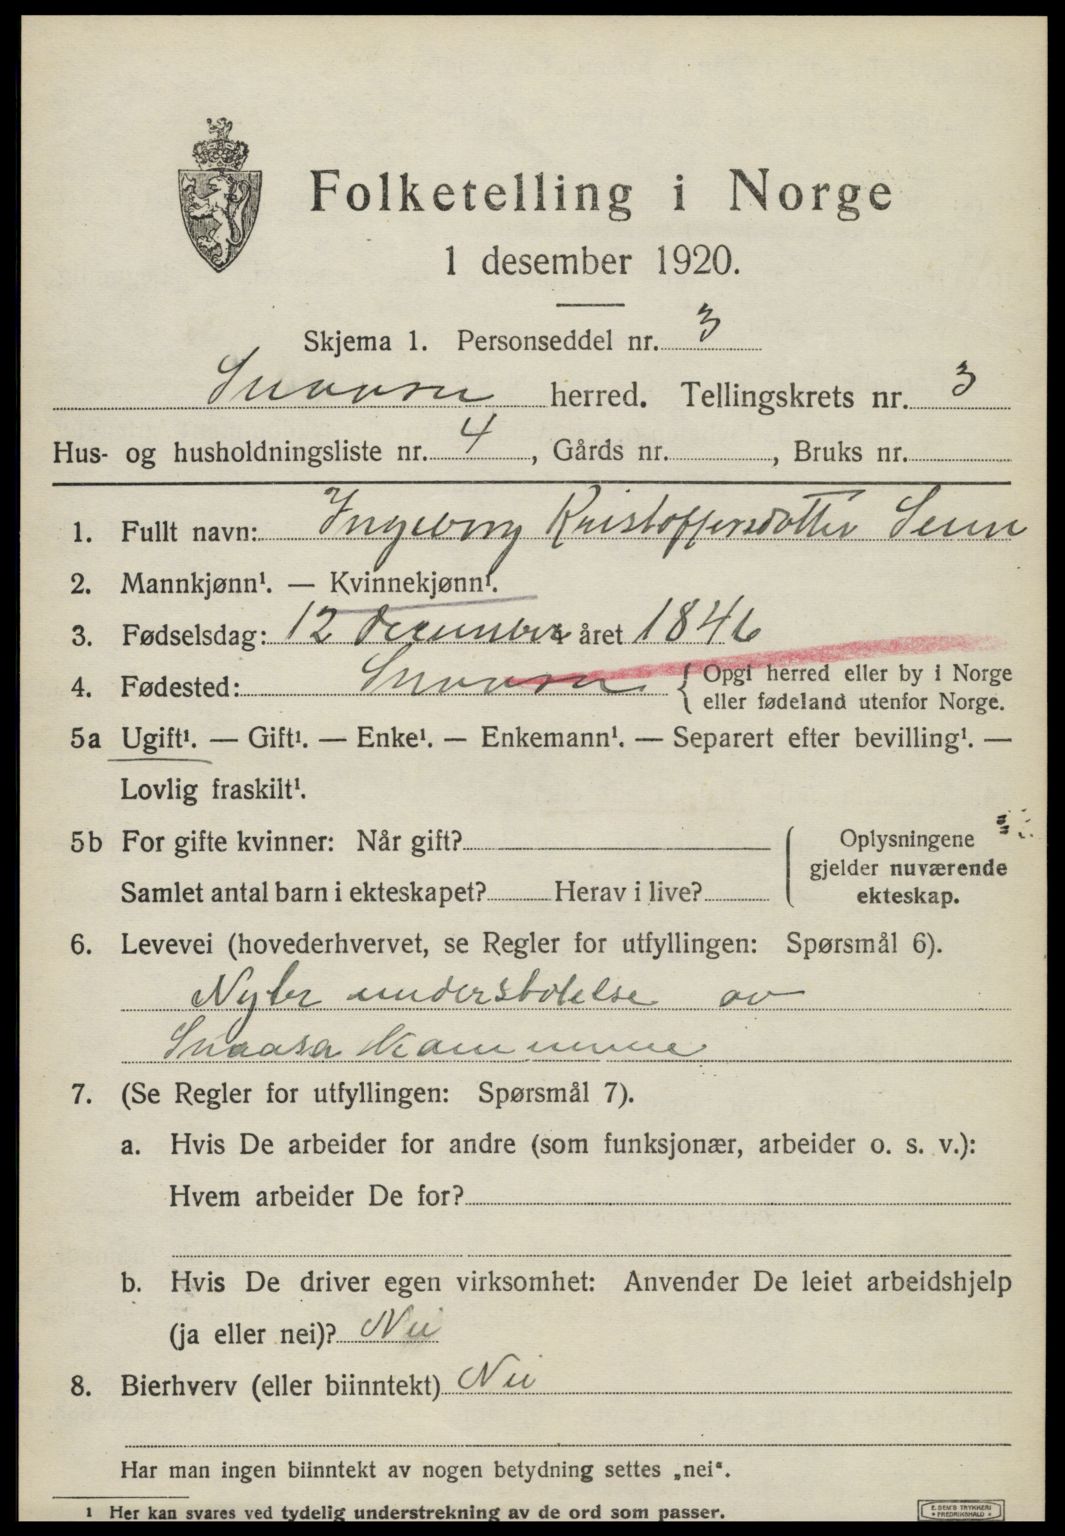 Folketelling i Norge
1 desember 1920.
Skjema 1. Personseddel nr. 3
Snaasa herred. Tellingskrets nr. 3
Hus- og husholdningsliste nr. 4, Gårds nr. , Bruks nr.
1. Fullt navn: Ingeborg Kristoffersdotter
2. Mannkjønn¹. — Kvinnekjønn¹.
3. Fødselsdag: 12 december året 1846
4. Fødested: Snaasa { Opgi herred eller by i Norge
eller fødeland utenfor Norge.
5a Ugift¹. — Gift¹. — Enke¹. — Enkemann¹. — Separert efter bevilling¹. —
Lovlig fraskilt¹.
5b For gifte kvinner: Når gift? Oplysningene
gjelder nuværende
Samlet antal barn i ekteskapet? Herav i live? ekteskap.
6. Levevei (hovederhvervet, se Regler for utfyllingen: Spørsmål 6).
Nyter understøtelse av
Snaasa Kommune
7. (Se Regler for utfyllingen: Spørsmål 7).
a. Hvis De arbeider for andre (som funksjonær, arbeider o. s. v.):
Hvem arbeider De for?
b. Hvis De driver egen virksomhet: Anvender De leiet arbeidshjelp
(ja eller nei)? Nei
8. Bierhverv (eller biinntekt) Nei
Har man ingen biinntekt av nogen betydning settes „nei“.
¹ Her kan svares ved tydelig understrekning av de ord som passer.
E. SEM'S TRYKKERI
FREDRIKSHALD